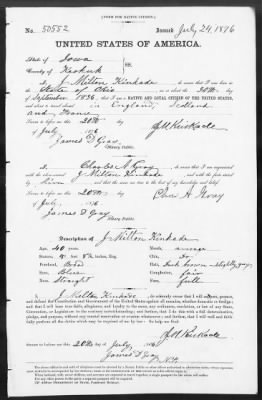 [FORM FOR NATIVE CITIZEN.]
No. 50552 Issued July 24, 1876
UNITED STATES OF AMERICA.
State of Iowa
County of Keokuk ss.
I, J Milton Kinkade, do swear that I was born in the
State of Ohio, on or about the 20th day
of September 1836, that I am a NATIVE AND LOYAL CITIZEN OF THE UNITED STATES,
and about to travel abroad in England, Scotland
and France
Sworn to before me this 20th day
of July, 1876 J M Kinkade
James D Gray
(Notary Public.)
I, Charles A Gray, do swear that I am acquainted
with the above-named J Milton Kinkade, and with the facts stated
by him, and that the same are true to the best of my knowledge and belief.
Sworn to before me this 20th day Chas A Gray
of July, 1876
James D Gray
(Notary Public.)
Description of J Milton Kinkade
Age, 40 years. Mouth, average
Stature, 5 feet 8½ inches, Eng. Chin, do
Forehead, Hair, dark brown slightly gray
Eyes, Blue Complexion, fair
Nose, Straight Face, full
I, J Milton Kinkade, do solemnly swear that I will support, protect,
and defend the Constitution and Government of the United States against all enemies, whether domestic or foreign; and
that I will bear true faith, allegiance, and loyalty to the same, any ordinance, resolution, or law of any State, Convention,
or Legislature to the contrary notwithstanding; and further, that I do this with a full determination,
pledge, and purpose, without any mental reservation or evasion whatsoever; and further, that I will well and faithfully
perform all the duties which may be required of me by law: So help me God.
J M Kinkade
Sworn to before me, this 20th day July, 1876
James D Gray
N.P.